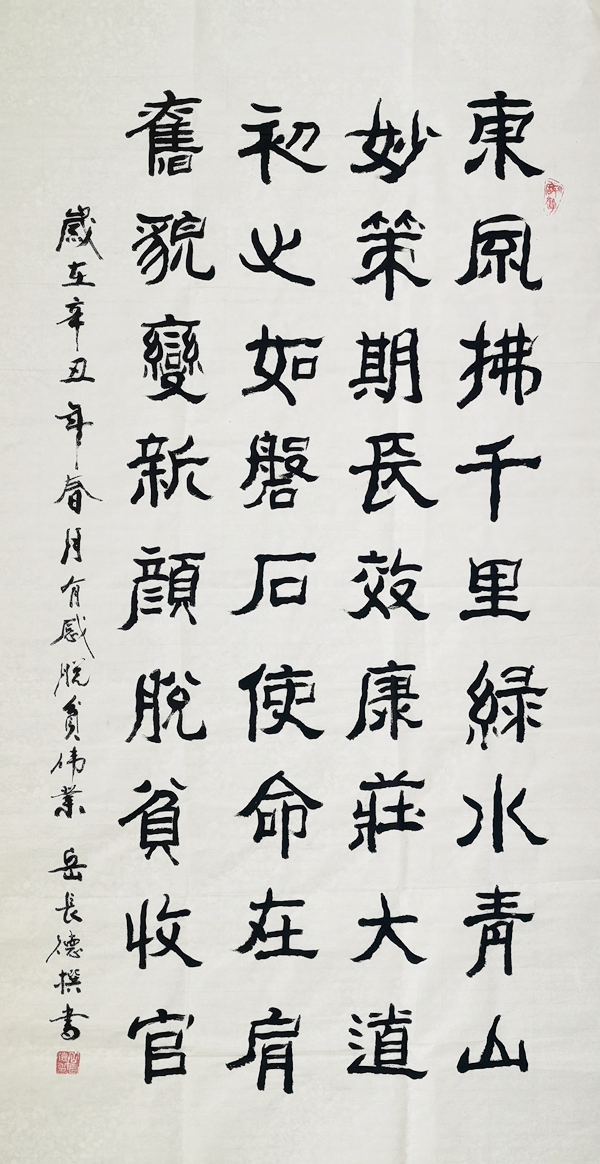 東風拂千里綠水青山
妙策期長效康莊大道
初心如磐石使命在肩
舊貌變新顏脫貧收官
歲在辛丑年春月有感脫貧偉業 岳長德撰書